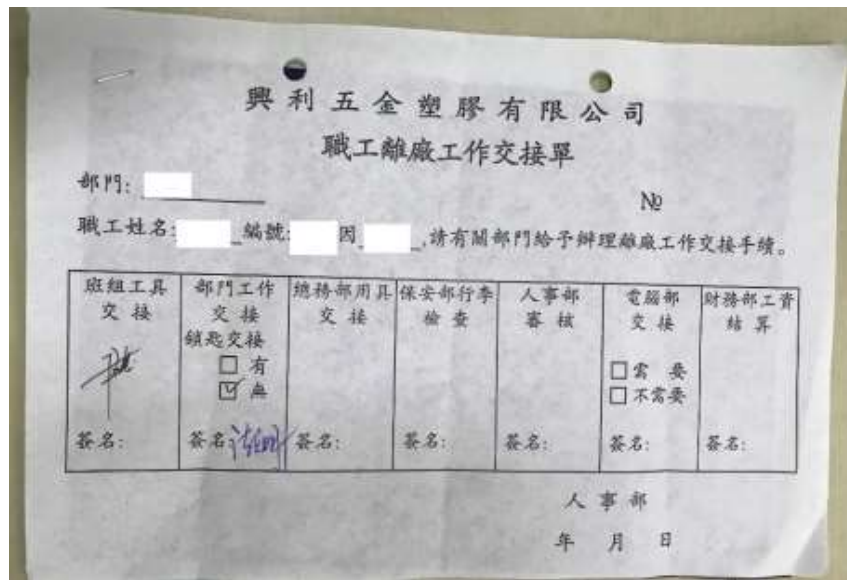 興利五金塑膠有限公司
職工離廠工作交接單
部門:
№
職工姓名: 編號: 因 ,請有關部門給予辦理離廠工作交接手續。
班組工具交接
簽名:
部門工作交接
鎖匙交接
□ 有
☑ 無
簽名
總務部用具交接
簽名:
保安部行李檢查
簽名:
人事部審核
簽名:
電腦部交接
□ 需要
□ 不需要
簽名:
財務部工資結算
簽名:
人事部
年 月 日